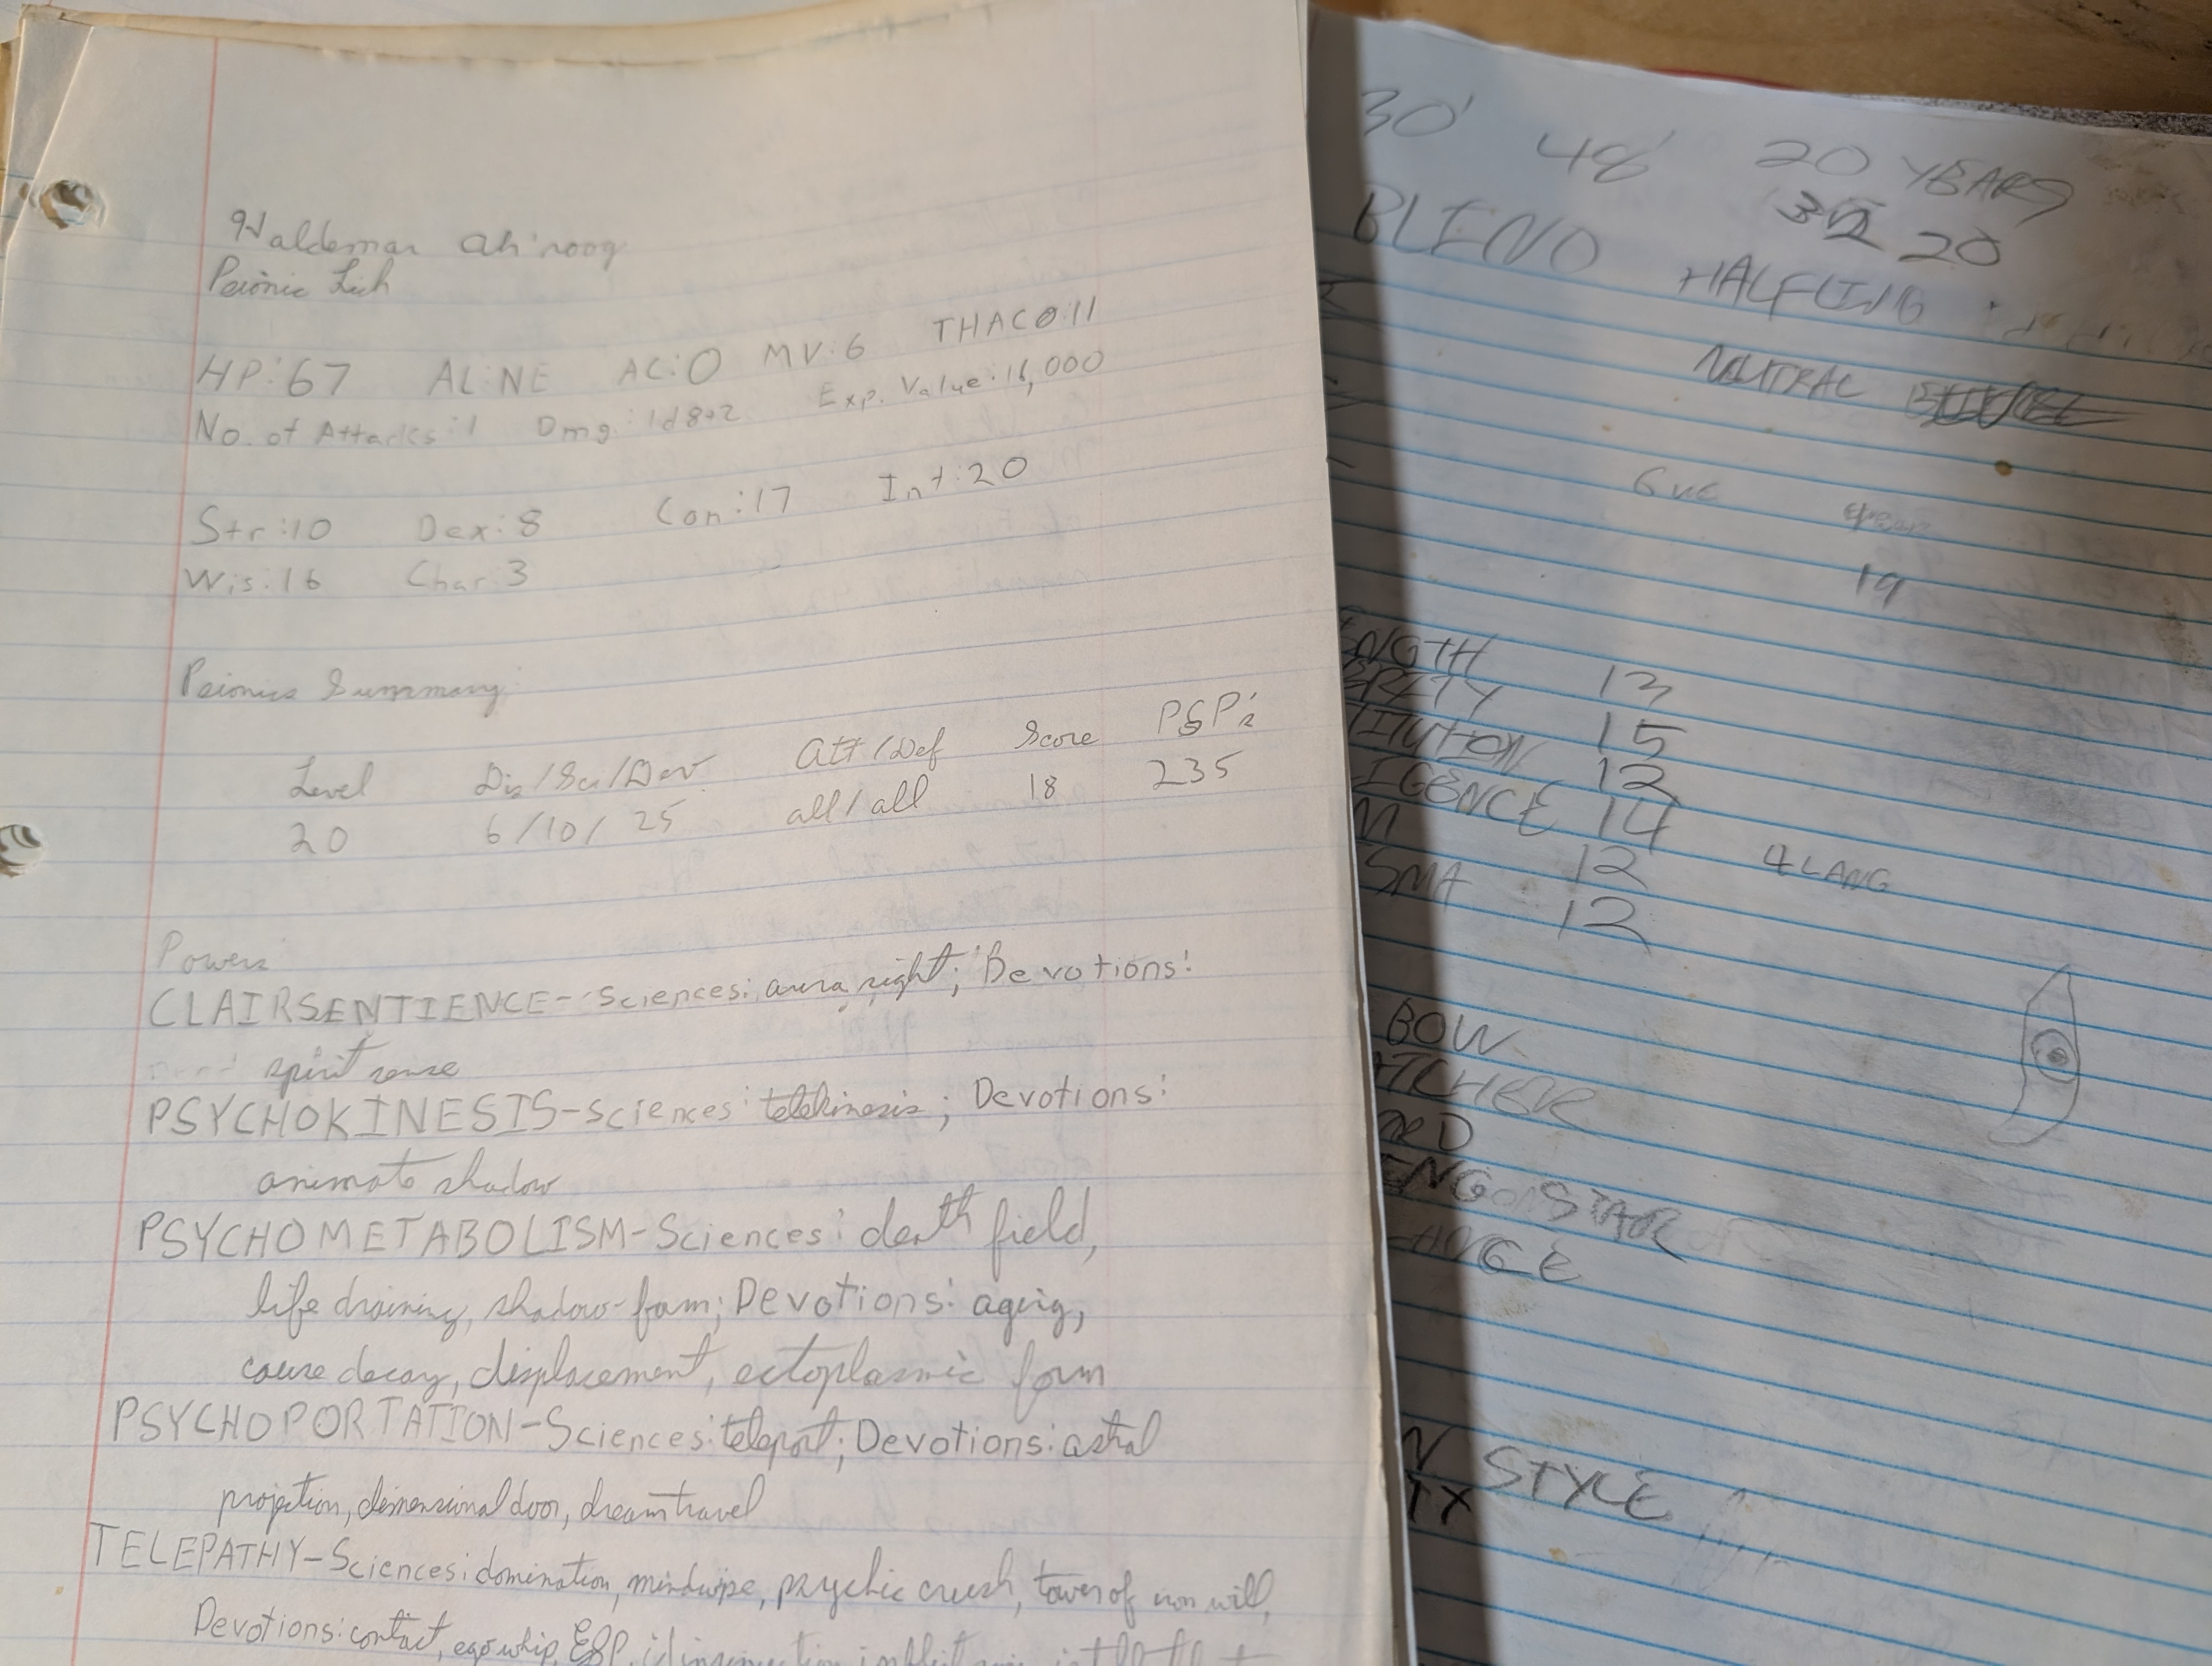 Waldemar Ah'roog
Psionic Lich
HP:67 AL:NE AC:0 MV:6 THAC0:11
No. of Attacks:1 Dmg:1d8+2 Exp. Value:16,000
Str:10 Dex:8 Con:17 Int:20
Wis:16 Char:3
Psionics Summary:
Level Dis/Sci/Dev Att/Def Score PSP's
20 6/10/25 all/all 18 235
Powers
CLAIRSENTIENCE-Sciences: aura sight; Devotions:
spirit sense
PSYCHOKINESIS-Sciences: telekinesis; Devotions:
animate shadow
PSYCHOMETABOLISM-Sciences: death field,
life draining, shadow-form; Devotions: aging,
cause decay, displacement, ectoplasmic form
PSYCHOPORTATION-Sciences: teleport; Devotions: astral
projection, dimensional door, dream travel
TELEPATHY-Sciences: domination, mindwipe, psychic crush, tower of iron will,
Devotions: contact, ego whip, ESP, id insinuation
30' 48' 20 YEARS
32 20
BLIND HALFLING
NEUTRAL
19
NGTH 13
15
ITUTION 12
IGENCE 14
M 12 4 LANG
SMA 12
BOW
STAR
STYLE